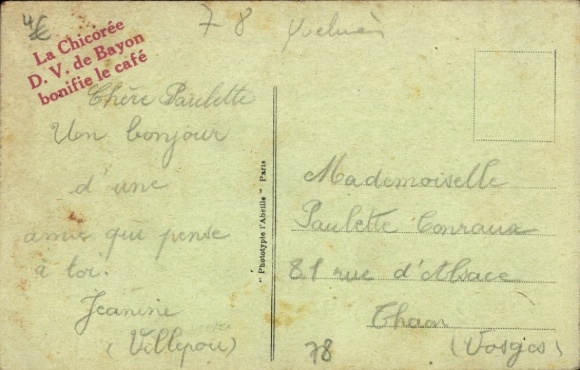 4€
7-8 Yvelines
La Chicorée
D. V. de Bayon
bonifie le café
Chère Paulette
Un bonjour
d'une
amie qui pense
à toi.
Jeanine
" Phototypie l'Abeille " Paris
Mademoiselle
Paulette Conraux
81 rue d'Alsace
Thaon
(Vosges)
78